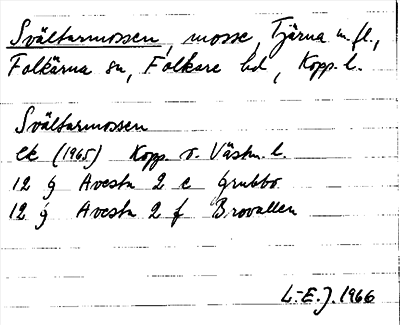 Svältarmossen, mosse, Tjärna m.fl.,
Folkärna sn, Folkare hd, Kopp. l.
Svältarmossen
ek (1965) Kopp. o. Västm. l.
12 g Avesta 2 e Grubbo
12 g Avesta 2 f Brovallen
L-E.J. 1966